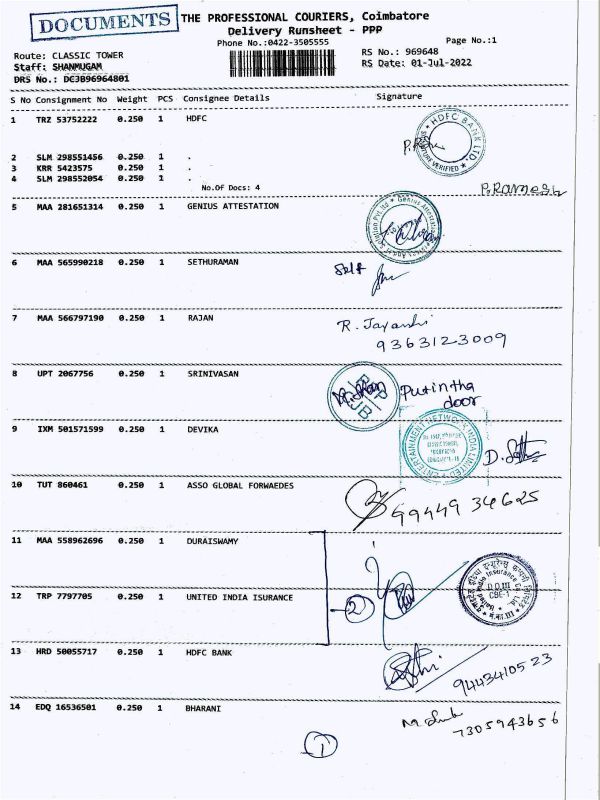 DOCUMENTS
THE PROFESSIONAL COURIERS, Coimbatore
Delivery Runsheet - PPP
Phone No.:0422-3505555
Page No.:1
Route: CLASSIC TOWER
RS No.: 969648
Staff: SHANMUGAM
RS Date: 01-Jul-2022
DRS No.: DCJB96964801
S No Consignment No Weight PCS Consignee Details Signature
1 TRZ 53752222 0.250 1 HDFC
HDFC BANK LTD.
SIGNATURE VERIFIED
2 SLM 298551456 0.250 1 .
3 KRR 5423575 0.250 1 .
4 SLM 298552054 0.250 1 .
No.Of Docs: 4
P.Ramesh
5 MAA 281651314 0.250 1 GENIUS ATTESTATION
6 MAA 565990218 0.250 1 SETHURAMAN
Self
7 MAA 566797190 0.250 1 RAJAN
R. Jayanthi
9363123009
8 UPT 2067756 0.250 1 SRINIVASAN
Putintha
door
9 IXM 501571599 0.250 1 DEVIKA
ENTERTAINMENT NETWORK INDIA LIMITED
10 TUT 860461 0.250 1 ASSO GLOBAL FORWAEDES
99449 34625
11 MAA 558962696 0.250 1 DURAISWAMY
12 TRP 7797705 0.250 1 UNITED INDIA ISURANCE
2
D.O.III
CBE-1
13 HRD 50055717 0.250 1 HDFC BANK
9443410523
14 EDQ 16536501 0.250 1 BHARANI
7305943656
1